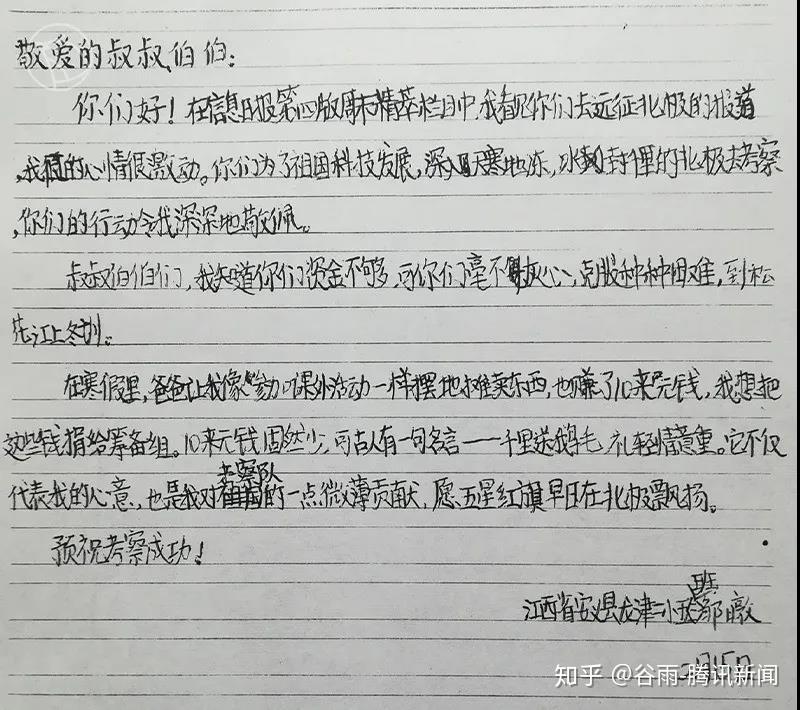 敬爱的叔叔、伯伯:
你们好!在信息日报第四版周末精萃栏目中,我看见你们去远征北极的报道
,我的心情很激动。你们为了祖国科技发展,深入天寒地冻,冰封千里的北极去考察
,你们的行动令我深深地敬佩。
叔叔伯伯们,我知道你们资金不够,可你们毫不灰心,克服种种困难,到松
花江上冬训。
在寒假里,爸爸让我像参加课外活动一样摆地摊卖东西,也赚了10来元钱,我想把
这些钱捐给筹备组。10来元钱固然少,可古人有一句名言——千里送鹅毛,礼轻情意重。它不仅
代表我的心意,也是我对考察队的一点微薄贡献,愿五星红旗早日在北极飘扬。
预祝考察成功!
江西省安义县龙津二小五班邹暾
2月15日
知乎 @谷雨-腾讯新闻